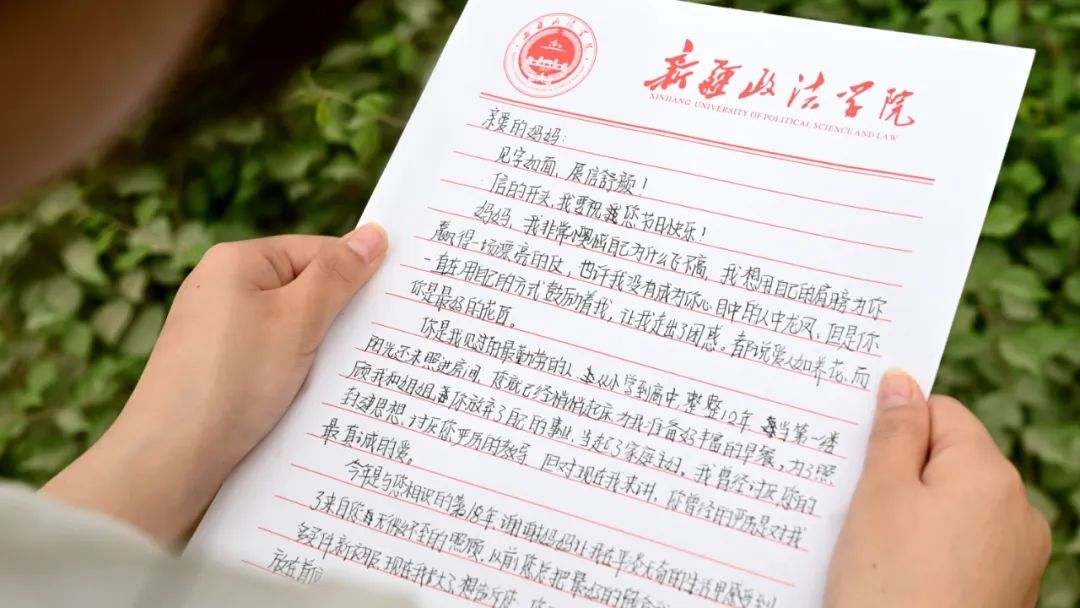 新疆政法学院
XINJIANG UNIVERSITY OF POLITICAL SCIENCE AND LAW
亲爱的妈妈:
见字如面,展信舒颜!
信的开头,我要祝您节日快乐!
妈妈,我非常懊恼自己为什么飞不高,我想用自己的肩膀为你
赢得一场漂亮的仗,也许我没有成为你心目中的人中龙凤、但是你
一直在用自己的方式鼓励着我,让我走出了困惑。都说爱人如养花,而
你是最好的花匠。
你是我见过的最勤劳的人,从小学到高中整整12年,当第一缕
阳光还未照进房间,你就已经悄悄起床为我准备好丰富的早餐,为了照
顾我和姐姐,你放弃了自己的事业,当起了家庭主妇,我曾经讨厌你的
封建思想、讨厌您严厉的教导,但对现在我来讲,你曾经的严厉是对我
最真诚的爱。
今年是与您相识的第18年,谢谢妈妈让我在平淡无奇的生活里感受到
了来自您无微不至的照顾,以前您总把最好的留给
现在我长大了,想告诉您,
放在首位